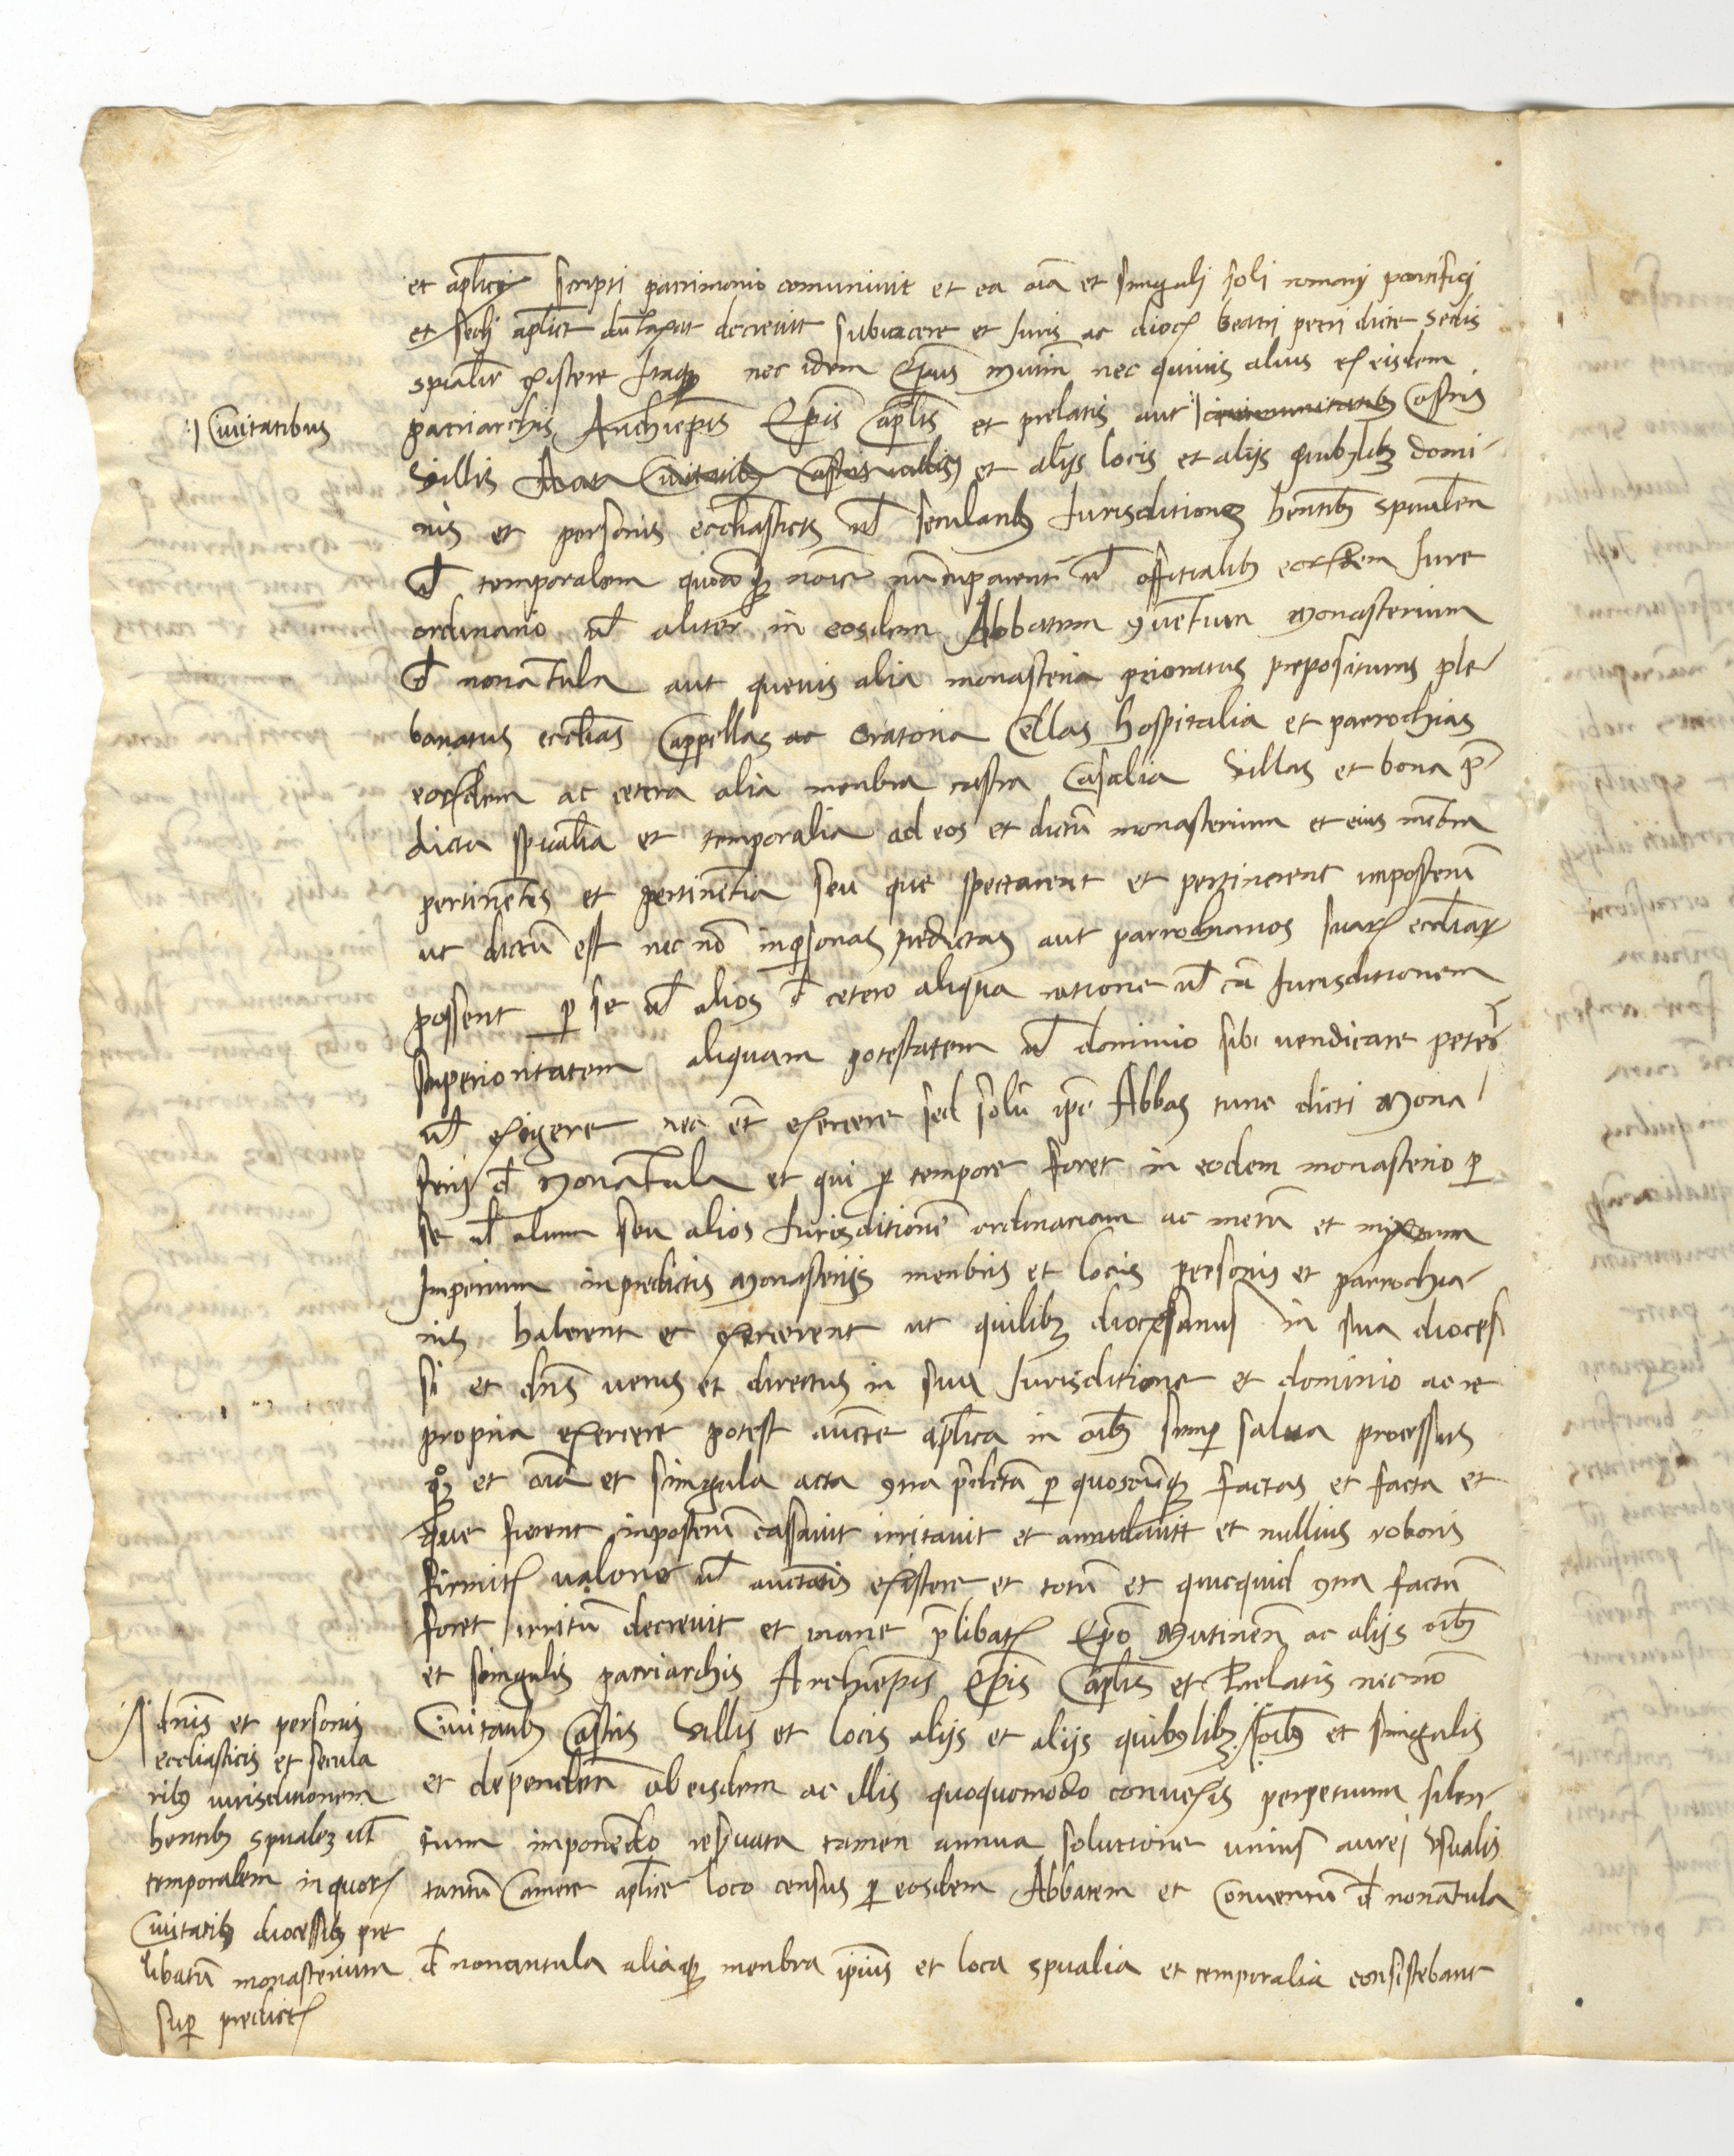 et apl'icj scripti patrimonio comuniuit et ea oīa et singulj soli romanj pontificj
et sedj apl'ice dūtaxat decreuit subiacere et Iuris ac dioc beati petri dicte Sedis
spialīr existere Itaqȝ nec idem Ep̄us mutin̄ nec quiuis alius ex eisdem
patriarchis Archiep̄is Ep̄is Cap̄lis et prelatis aut Castris
Villis et alijs locis et alijs quibȝlibȝ domi-
nis et personis eccl'iasticis ul' secularibȝ Iurisditionē hēntibȝ spūalem
ul' temporalem quocūqȝ noīe nūcuparent' ul' offitialibȝ eorūdem Iure
ordinario ul' aliter in eosdem Abbatem ꝯuētum Monasterium
d' nonātula aut queuis alia monasteria prioratus preposituras ple-
banatus eccl'ias Cappellas ac Oratoria Cellas hospitalia et parrochias
eorūdem ac cetera alia menbra castra Casalia Villas et bona p̄-
dicta sp̄ualia et temporalia ad eos et dictū monasterium et eius mēbra
pertinētes et pertinētia seu que spectarent et pertinerent imposterū
ut dictū est nec nō in p̱sonas predictas aut parrochianos suaꝝ eccl'iaꝝ
possent ꝑ se ul' alios d' cetero aliqua ratione ul' cā Iurisditionem
superioritatem aliquam potestatem ul' dominio sibi uendicare peter̄
ul' exigere nec et̄ exercere sed solū ip̄e Abbas tunc dicti Mona
sterij d' Nonātula et qui ꝓ tempore foret in eodem monasterio ꝑ
se ul' alium seu alios Iurisditionē ordinariam ac merū et mixtum
Imperium in predictis Monasterijs menbris et locis personis et parrochia-
nis haberent et exercerent ut quilibȝ diocesanus in sua dioces
si et dn̄s uerus et directus in sua Iurisditione et dominio ac re
propria exercere potest auct̄e apl'ica in oībȝ semꝑ salua processus
qȝ et oīa et singula acta ꝯtra p̄dicta ꝑ quoscūqȝ factas et facta et
que fierent imposterū cassauit irritauit et annulauit et nullius roboris
firmitꝭ ualore ul' auct̄atis existere et totū et quicquid ꝯtra factū
foret irritū decreuit et inane p̄libatꝭ Ep̄o Mutinen̄ ac alijs oībȝ
et singulis patriarchis Archiep̄is Ep̄is Cap̄lis et Prelatis nec nō
Ciuitatibȝ Castris Villis et locis alijs et alijs quibȝlibȝ oībȝ et singulis
et dependen̄ ab eisdem ac illis quoquomodo connexis perpetuum silen-
tium imponendo reseruata tamen annua solutione unius aurej Vsualis
tantū Camere apl'ice loco census ꝑ eosdem Abbatem et Conuentū d' nonātula
d' nonantula aliaqȝ menbra ip̄ius et loca spualia et temporalia consistebant
Ciuitatibus
dn̄is et personis
eccl'iasticis et secula
ribȝ iurisditionem
hentibȝ spualeȝ ul'
temporalem in quoꝝ
Ciuitatibȝ diocesibȝ pre
libatū monasterium
suꝑ predictꝭ